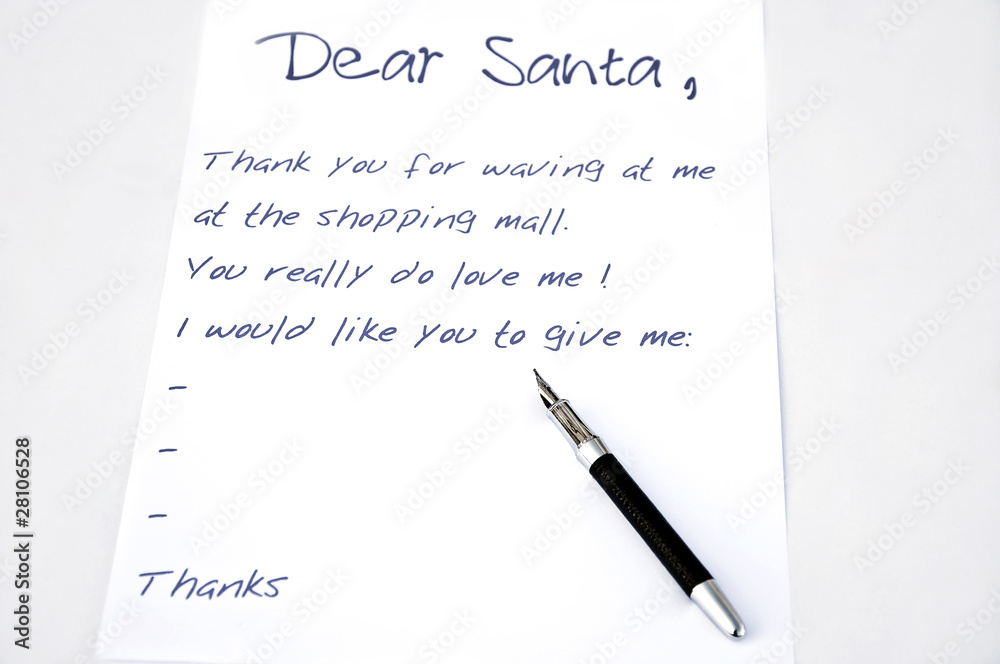 Dear Santa,
Thank you for waving at me
at the shopping mall.
You really do love me!
I would like you to give me:
-
-
-
Thanks
Adobe Stock | #28106528